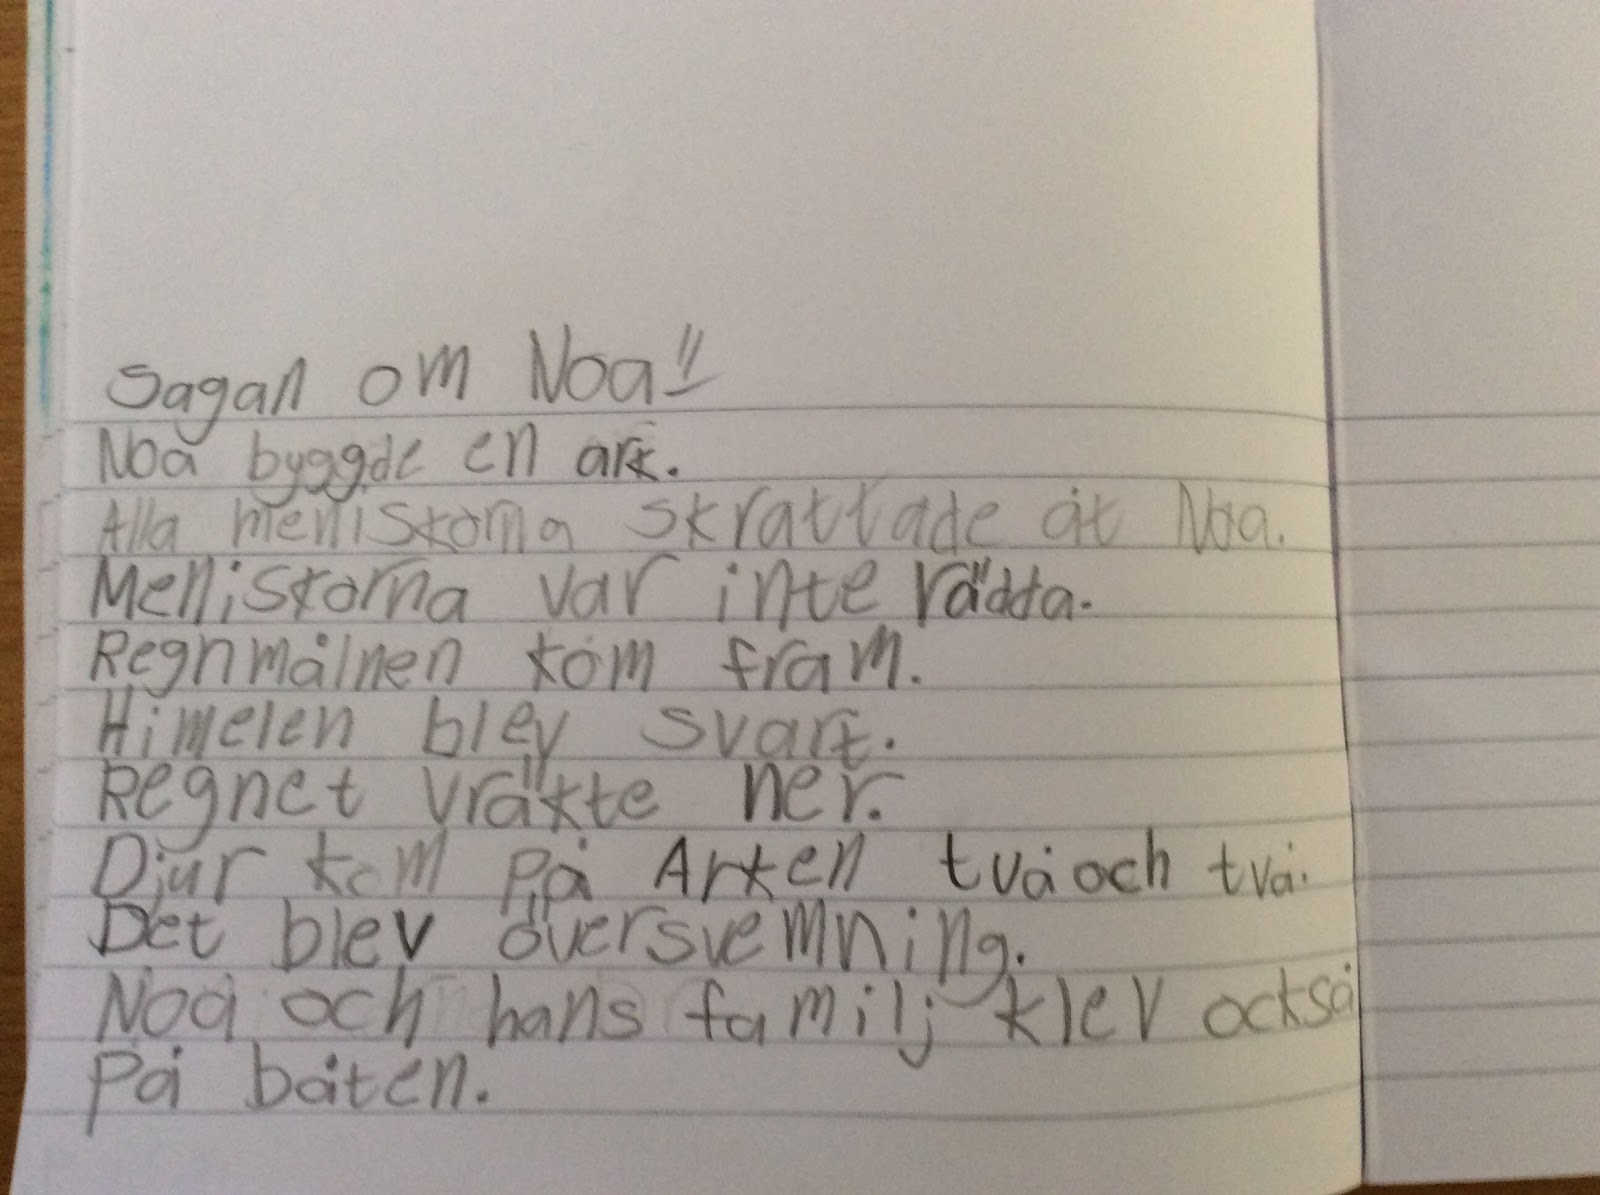 Sagan om Noa!!
Noa byggde en ark.
Alla meniskorna skrattade åt Noa.
Meniskorna var inte rädda.
Regnmålnen kom fram.
Himelen blev svart.
Regnet vräkte ner.
Djur kom på Arken två och två.
Det blev översvemning.
Noa och hans familj klev också
på båten.